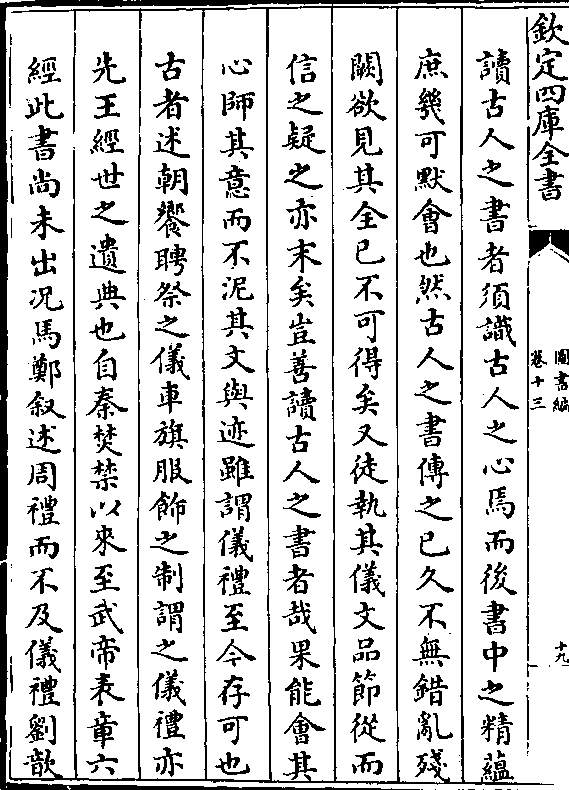 欽定四庫全書
圖書編
卷十三
十九
讀古人之書者須識古人之心焉而後書中之精蘊
庶幾可默會也然古人之書傳之已久不無錯亂殘
闕欲見其全已不可得矣又徒執其儀文品節從而
信之疑之亦末矣豈善讀古人之書者哉果能會其
心師其意而不泥其文與迹雖謂儀禮至今存可也
古者述朝饗聘祭之儀車旗服飾之制謂之儀禮亦
先王經世之遺典也自秦焚禁以來至武帝表章六
經此書尚未出況馬鄭叙述周禮而不及儀禮劉歆